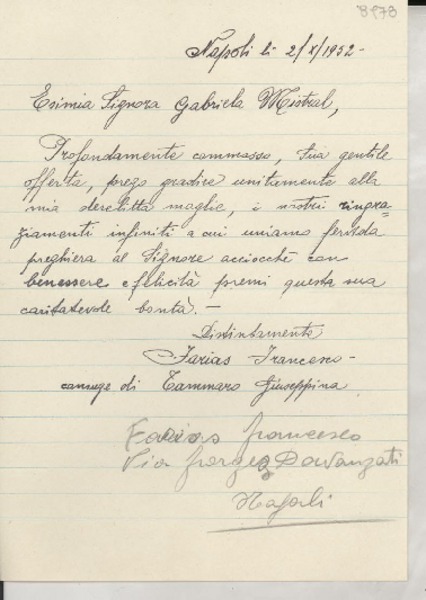 8973
Napoli li 2/X/1952-
Esimia Signora Gabriela Mistral,
Profondamente commosso, sua gentile
offerta, prego gradire unitamente alla
mia derelitta moglie, i nostri ringra=
ziamenti infiniti a cui uniamo fervida
preghiera al Signore acciocchè con
benessere e felicità premi questa sua
caritatevole bontà. -
Distintamente
Farias Francesco -
coniuge di Tammaro Giuseppina
Farias Francesco
Via Davanzati
Napoli